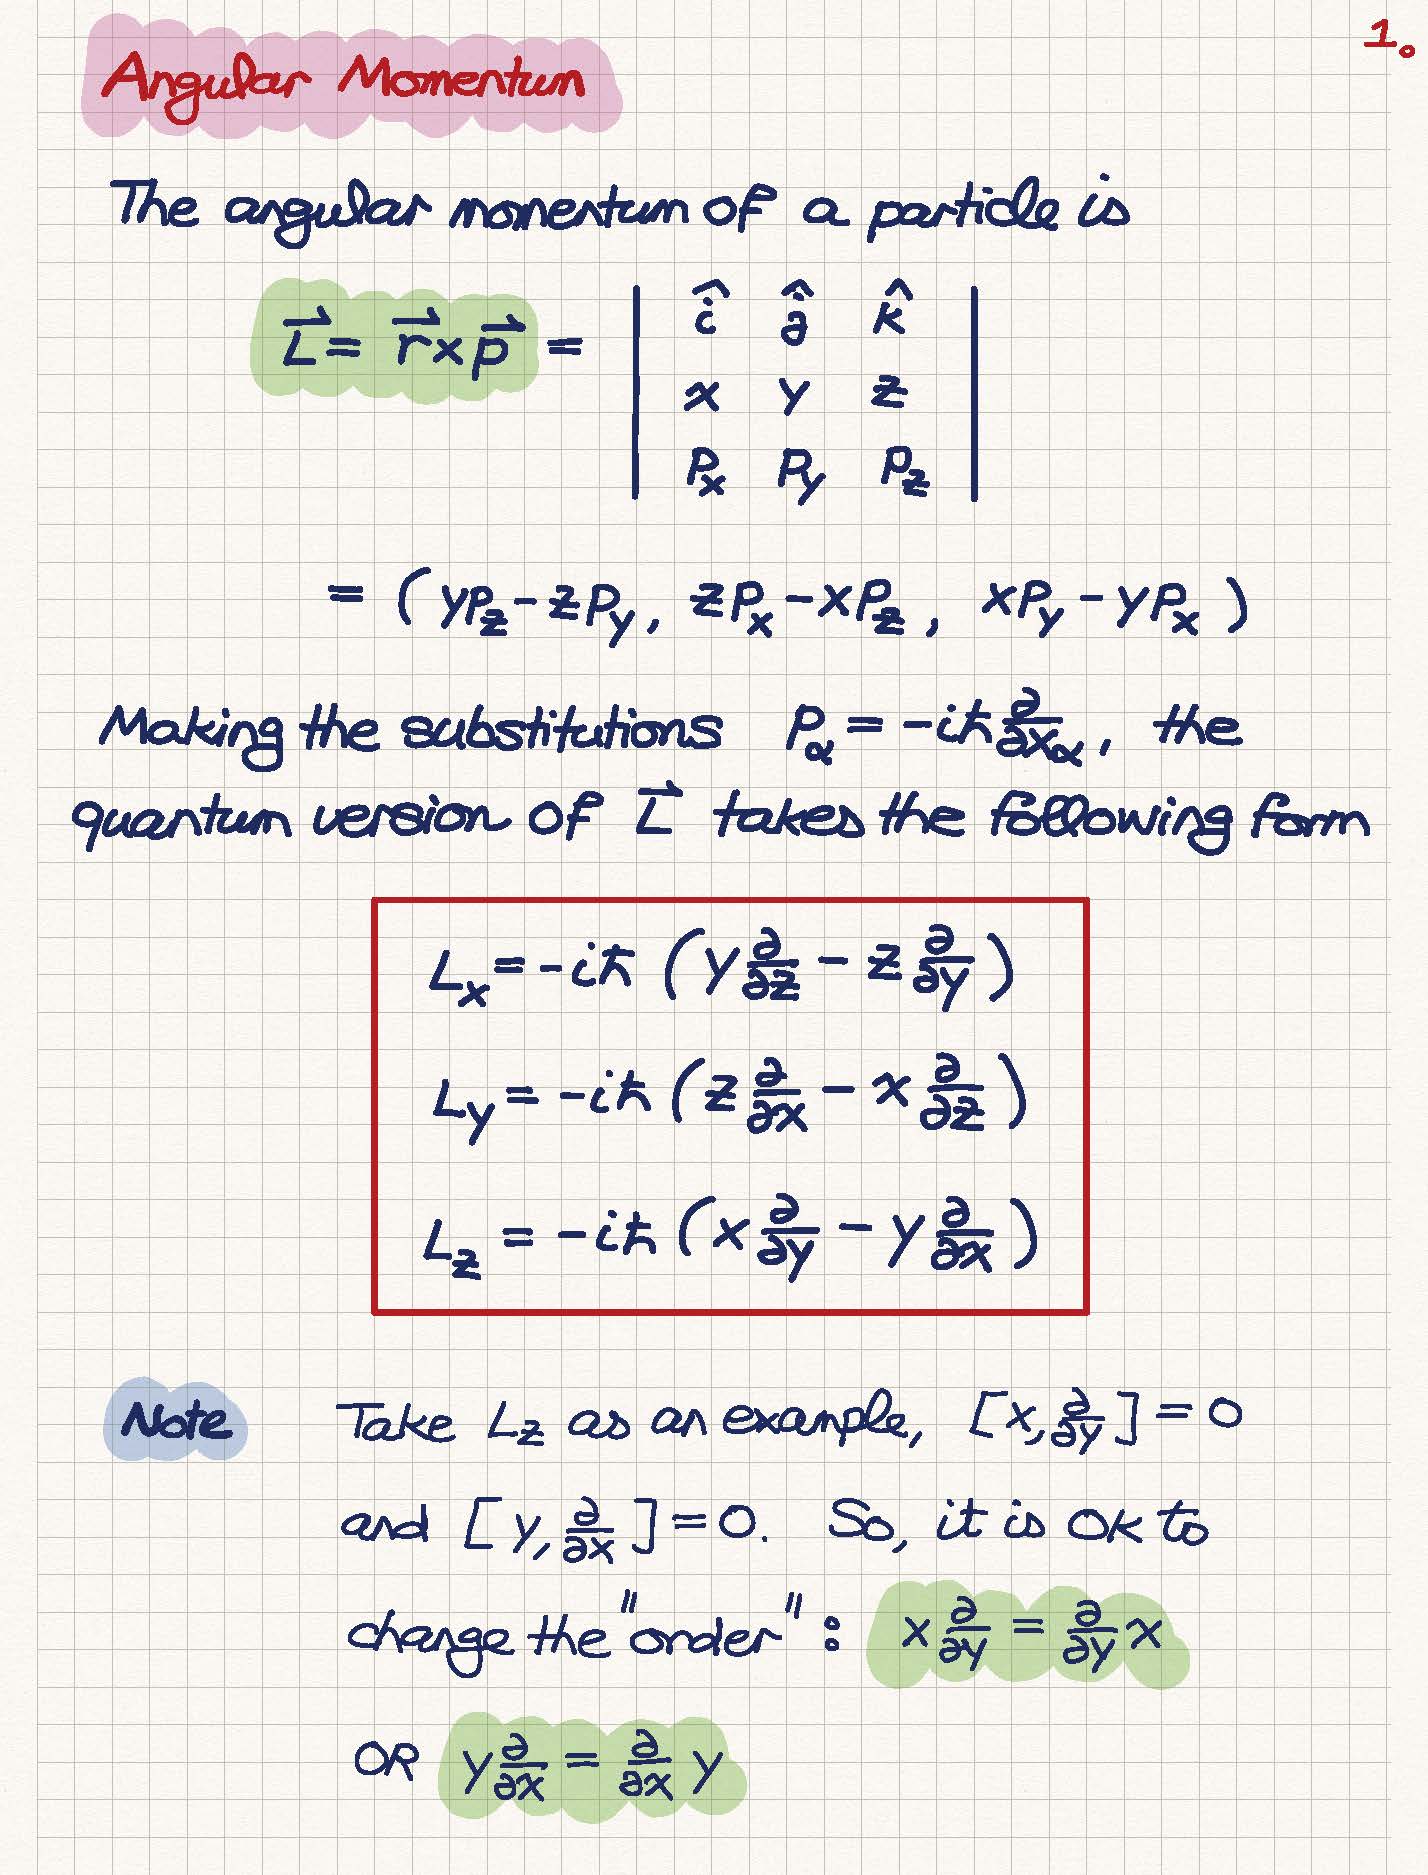 1.
Angular Momentum
The angular momentum of a particle is
$\vec{L} = \vec{r} \times \vec{p} = \begin{vmatrix} \hat{i} & \hat{j} & \hat{k} \\ x & y & z \\ p_x & p_y & p_z \end{vmatrix}$
$= (yp_z - zp_y, zp_x - xp_z, xp_y - yp_x)$
Making the substitutions $p_\alpha = -i\hbar \frac{\partial}{\partial x_\alpha}$, the
quantum version of $\vec{L}$ takes the following form
$L_x = -i\hbar \left( y \frac{\partial}{\partial z} - z \frac{\partial}{\partial y} \right)$
$L_y = -i\hbar \left( z \frac{\partial}{\partial x} - x \frac{\partial}{\partial z} \right)$
$L_z = -i\hbar \left( x \frac{\partial}{\partial y} - y \frac{\partial}{\partial x} \right)$
Note Take $L_z$ as an example, $[x, \frac{\partial}{\partial y}] = 0$
and $[y, \frac{\partial}{\partial x}] = 0$. So, it is OK to
change the "order" : $x \frac{\partial}{\partial y} = \frac{\partial}{\partial y} x$
OR $y \frac{\partial}{\partial x} = \frac{\partial}{\partial x} y$